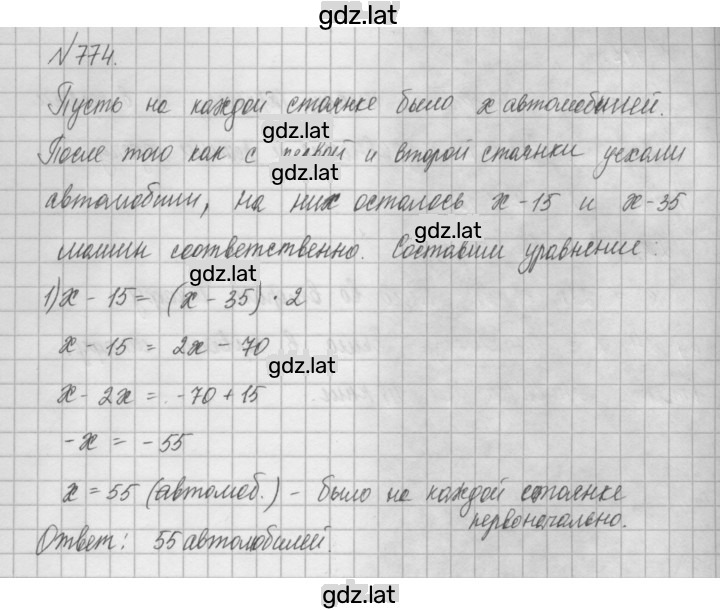 gdz.lat
№774.
Пусть на каждой стоянке было x автомобилей.
gdz.lat
После того как с первой и второй стоянки уехали
gdz.lat
автомобили, на них осталось x - 15 и x - 35
gdz.lat
машин соответственно. Составим уравнение:
gdz.lat
1) x - 15 = (x - 35) · 2
x - 15 = 2x - 70
gdz.lat
x - 2x = -70 + 15
-x = -55
x = 55 (автомоб.) - было на каждой стоянке
первоначально.
gdz.lat
Ответ: 55 автомобилей.
gdz.lat